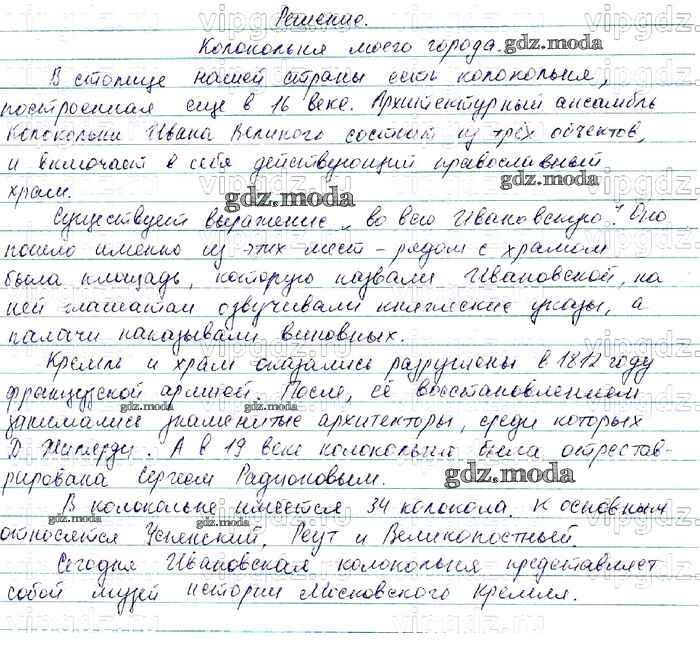 Решение.
Колокольня моего города. gdz.moda
В столице нашей страны есть колокольня,
построенная еще в 16 веке. Архитектурный ансамбль
колокольни Ивана Великого состоит из трёх объектов,
и включает в себя действующий православный
храм.
Существует выражение „во всю Ивановскую“. Оно
пошло именно из этих мест – рядом с храмом
была площадь, которую назвали Ивановской, на
ней глашатаи озвучивали княжеские указы, а
палачи наказывали виновных.
Кремль и храм оказались разрушены в 1812 году
французской армией. После, её восстановлением
занимались знаменитые архитекторы, среди которых
Д. Жилярди. А в 19 веке колокольня была отрестав-
рирована Сергеем Радионовым.
В колокольне имеется 34 колокола. К основным
относятся Успенский, Реут и Великопостный.
Сегодня Ивановская колокольня представляет
собой музей истории Московского Кремля.